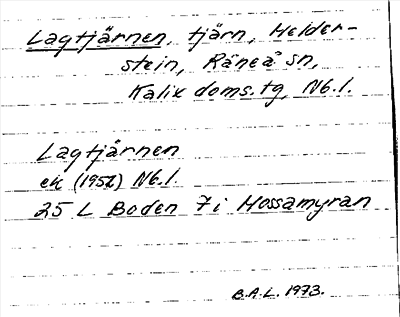 Lagtjärnen, tjärn, Helder-
stein, Råneå sn,
Kalix doms.tg, Nb.l.
Lagtjärnen
ek (1952) Nb.l.
25 L Boden 7i Mossamyran
B.A.L. 1973.